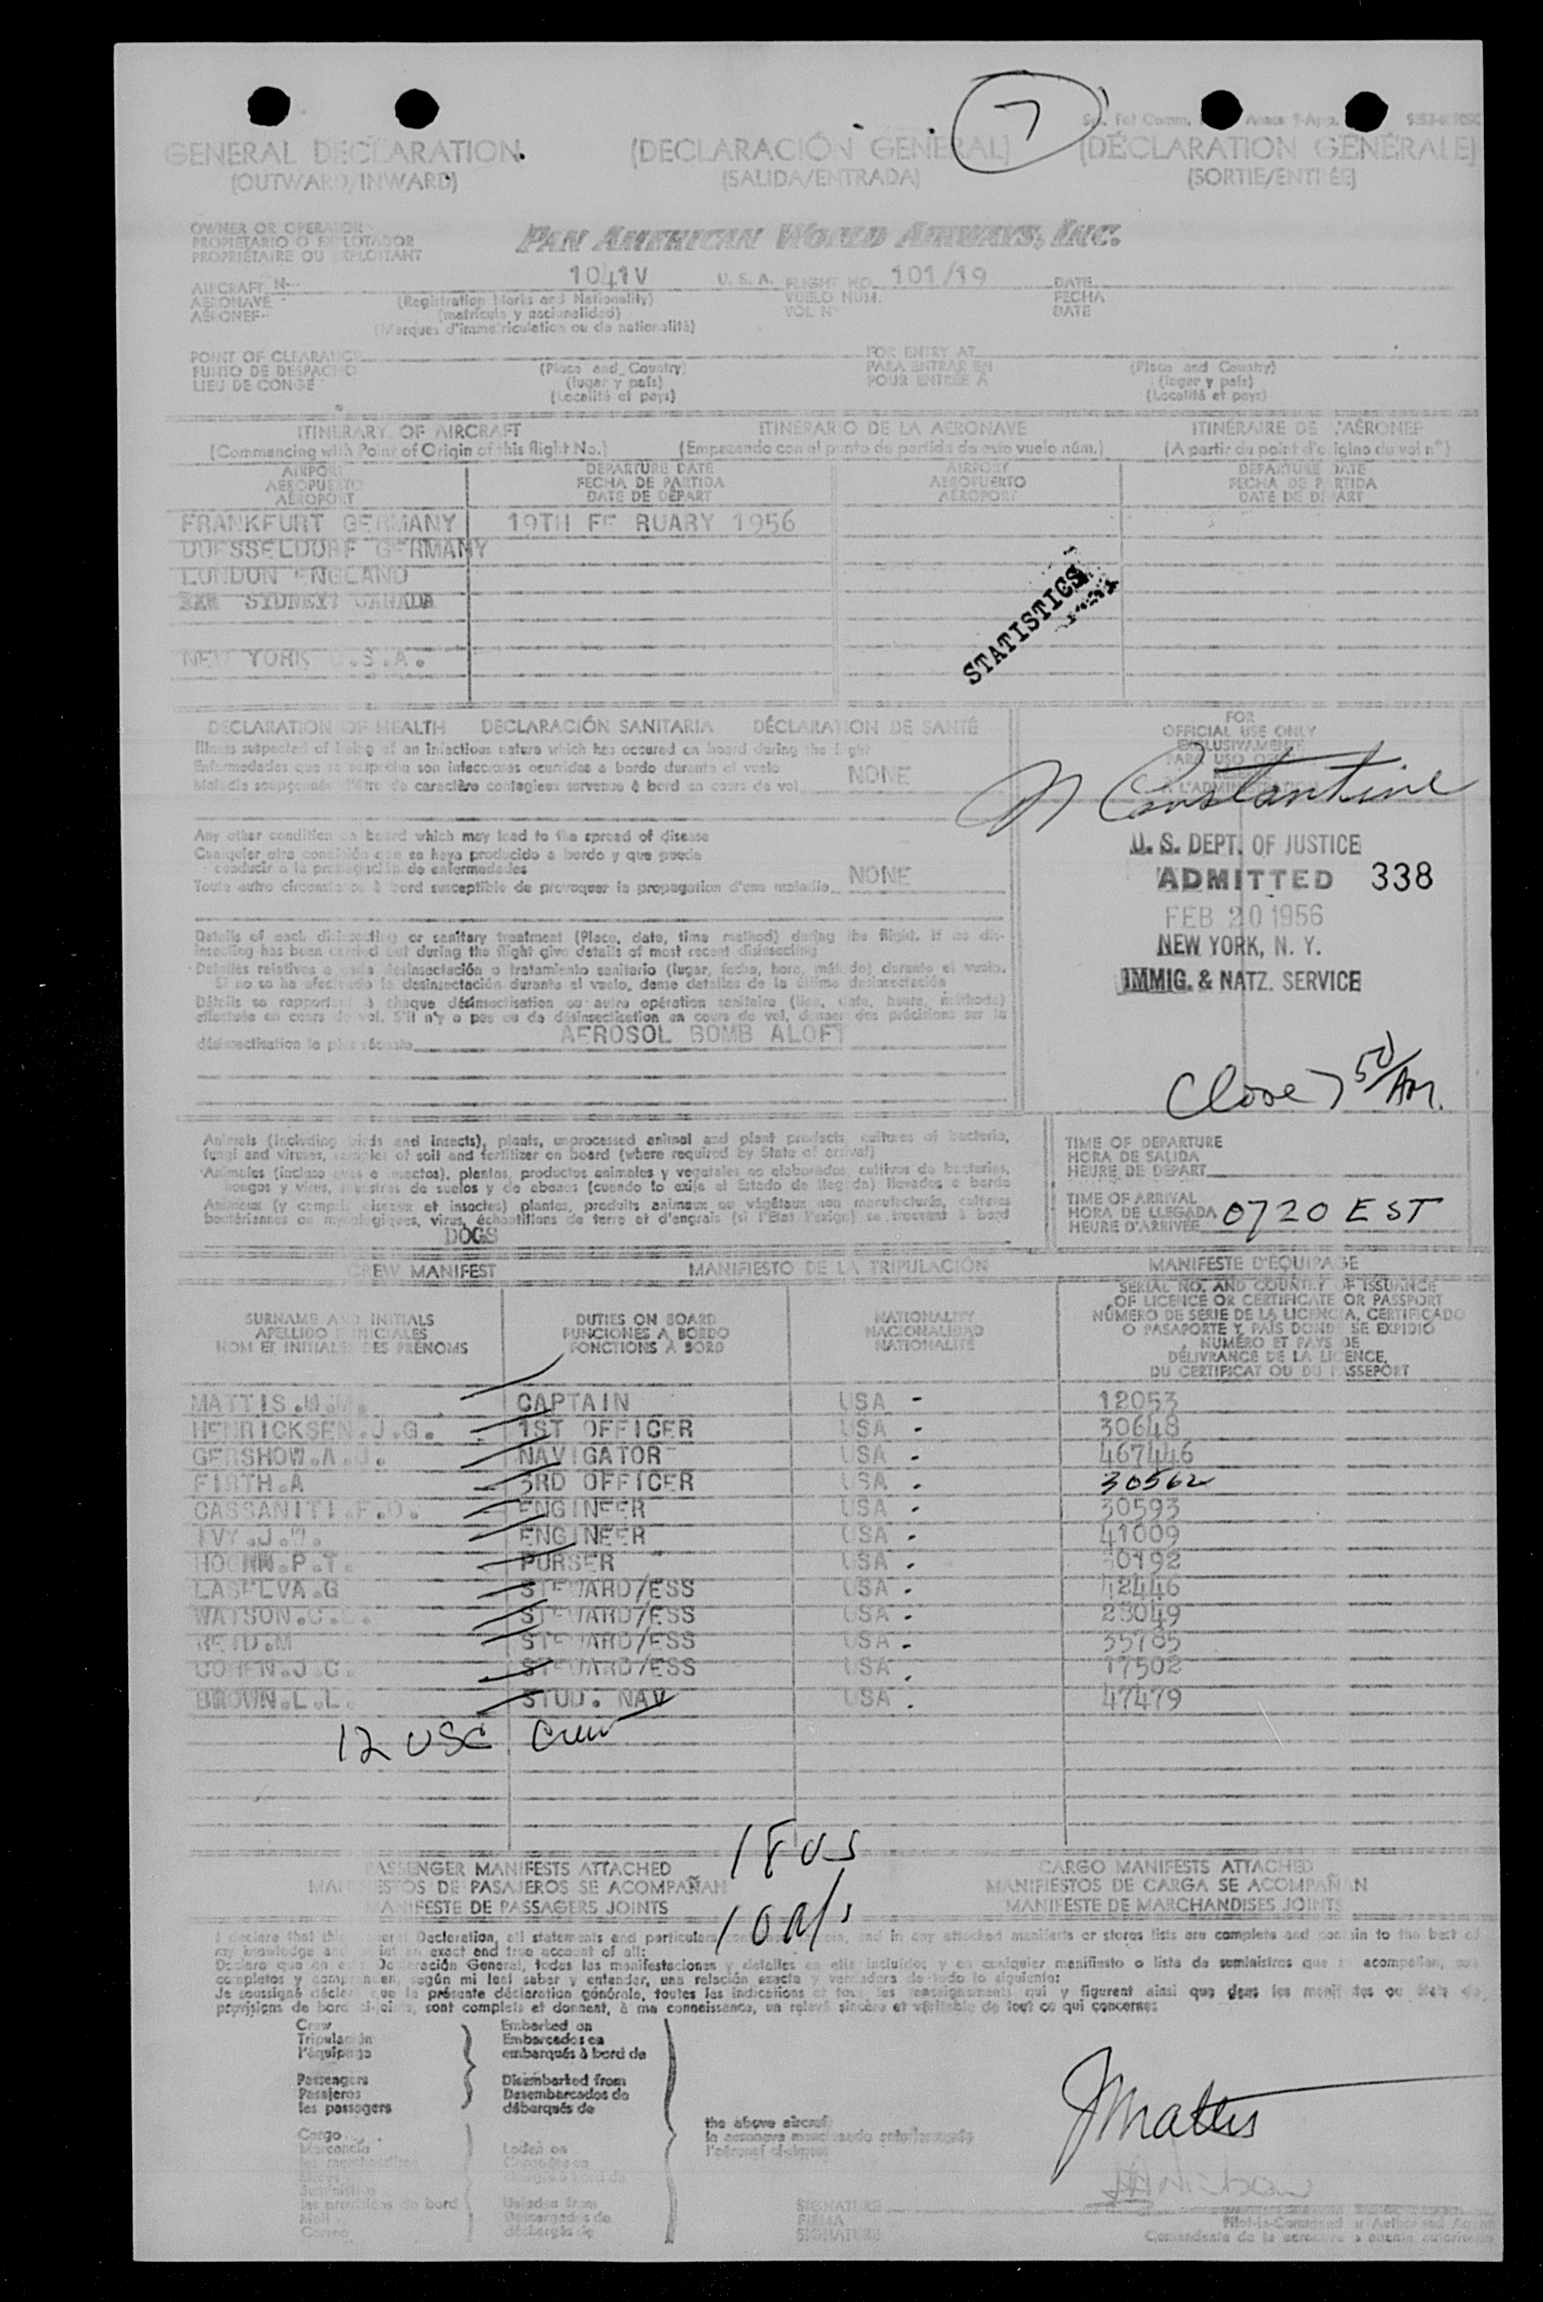 7
GENERAL DECLARATION (DECLARACIÓN GENERAL) (DÉCLARATION GÉNÉRALE)
(OUTWARD/INWARD) (SALIDA/ENTRADA) (SORTIE/ENTRÉE)
OWNER OR OPERATOR
PROPIETARIO O EXPLOTADOR
PROPRIÉTAIRE OU EXPLOITANT
PAN AMERICAN WORLD AIRWAYS, INC.
AIRCRAFT N- 1041V U. S. A. FLIGHT NO. 101/19 DATE
AERONAVE (Registration Marks and Nationality) VUELO NUM. FECHA
AÉRONEF (matrícula y nacionalidad) VOL N° DATE
(Marques d'immatriculation ou de nationalité)
POINT OF CLEARANCE FOR ENTRY AT
PUNTO DE DESPACHO (Place and Country) PARA ENTRAR EN (Place and Country)
LIEU DE CONGÉ (lugar y país) POUR ENTRÉE À (lugar y país)
(Localité et pays) (Localité et pays)
ITINERARY OF AIRCRAFT ITINERARIO DE LA AERONAVE ITINÉRAIRE DE L'AÉRONEF
(Commencing with Point of Origin of this flight No.) (Empezando con el punto de partida de este vuelo núm.) (A partir du point d'origine du vol n°)
AIRPORT DEPARTURE DATE AIRPORT DEPARTURE DATE
AEROPUERTO FECHA DE PARTIDA AEROPUERTO FECHA DE PARTIDA
AÉROPORT DATE DE DÉPART AÉROPORT DATE DE DÉPART
FRANKFURT GERMANY 19TH FE RUARY 1956
DUESSELDORF GERMANY
LONDON ENGLAND
SYDNEY CANADA
NEW YORK U.S.A.
STATISTICS
DECLARATION OF HEALTH DECLARACIÓN SANITARIA DÉCLARATION DE SANTÉ
Illness suspected of being of an infectious nature which has occured on board during the flight
Enfermedades que se sospecha son infecciosas ocurridas a bordo durante el vuelo
Maladie soupçonnée d'être de caractère contagieux survenue à bord en cours de vol NONE
Any other condition on board which may lead to the spread of disease
Cualquier otra condición que se haya producido a bordo y que pueda
conducir a la propagación de enfermedades
Toute autre circonstance à bord susceptible de provoquer la propagation d'une maladie NONE
Details of each disinsecting or sanitary treatment (Place, date, time method) during the flight. If no dis-
insecting has been carried out during the flight give details of most recent disinsecting
Detalles relativos a cada desinsectación o tratamiento sanitario (lugar, fecha, hora, método) durante el vuelo.
Si no se ha efectuado la desinsectación durante el vuelo, dense detalles de la última desinsectación
Détails se rapportant à chaque désinsectisation ou autre opération sanitaire (lieu, date, heure, méthode)
effectuée en cours de vol. S'il n'y a pas eu de désinsectisation en cours de vol, donner des précisions sur la
désinsectisation la plus récente AEROSOL BOMB ALOFT
FOR
OFFICIAL USE ONLY
EXCLUSIVAMENTE
N Constantine
U. S. DEPT. OF JUSTICE
ADMITTED 338
FEB 20 1956
NEW YORK, N. Y.
IMMIG. & NATZ. SERVICE
Close 7 50/AM.
Animals (including birds and insects), plants, unprocessed animal and plant products, cultures of bacteria,
fungi and viruses, samples of soil and fertilizer on board (where required by State of arrival)
Animales (incluso aves e insectos), plantas, productos animales y vegetales no elaborados, cultivos de bacterias,
hongos y virus, muestras de suelos y de abonos (cuando lo exija el Estado de llegada) llevados a bordo
Animaux (y compris oiseaux et insectes) plantes, produits animaux ou végétaux non manufacturés, cultures
bactériennes ou mycologiques, virus, échantillons de terre et d'engrais (si l'Etat l'exige) se trouvant à bord
DOGS
TIME OF DEPARTURE
HORA DE SALIDA
HEURE DE DEPART
TIME OF ARRIVAL
HORA DE LLEGADA
HEURE D'ARRIVÉE 0720 EST
CREW MANIFEST MANIFIESTO DE LA TRIPULACIÓN MANIFESTE D'ÉQUIPAGE
SURNAME AND INITIALS DUTIES ON BOARD NATIONALITY SERIAL NO. AND COUNTRY OF ISSUANCE
APELLIDO E INICIALES FUNCIONES A BORDO NACIONALIDAD OF LICENCE OR CERTIFICATE OR PASSPORT
NOM ET INITIALES DES PRÉNOMS FONCTIONS À BORD NATIONALITÉ NÚMERO DE SERIE DE LA LICENCIA, CERTIFICADO
O PASAPORTE Y PAÍS DONDE SE EXPIDIÓ
NUMÉRO ET PAYS DE
DÉLIVRANCE DE LA LICENCE,
DU CERTIFICAT OU DU PASSEPORT
MATTIS. CAPTAIN USA - 12053
HENRICKSEN.J.G. 1ST OFFICER USA - 30648
GERSHOW.A. NAVIGATOR USA - 467446
FIRTH.A 3RD OFFICER USA - 30562
CASSANITI.F. ENGINEER USA - 30593
IVY.J. ENGINEER USA - 41009
P.T. PURSER USA - 0192
LASELVA.G STEWARD/ESS USA - 42446
WATSON. STEWARD/ESS USA - 23049
REID.M STEWARD/ESS USA - 35785
COHEN.J.C. STEWARD/ESS USA - 17502
BROWN.L.L. STUD. NAV USA - 47479
12 USC Crew
18 US
10 A/s
PASSENGER MANIFESTS ATTACHED CARGO MANIFESTS ATTACHED
MANIFIESTOS DE PASAJEROS SE ACOMPAÑAN MANIFIESTOS DE CARGA SE ACOMPAÑAN
MANIFESTE DE PASSAGERS JOINTS MANIFESTE DE MARCHANDISES JOINTS
I declare that this General Declaration, all statements and particulars and in any attached manifests or stores lists are complete and contain to the best of
my knowledge and belief an exact and true account of all:
Declaro que en esta Declaración General, todas las manifestaciones y detalles en ella incluidos y en cualquier manifiesto o lista de suministros que se acompañan, son
completos y comprenden, según mi leal saber y entender, una relación exacta y verdadera de todo lo siguiente:
Je soussigné déclare que la présente déclaration générale, toutes les indications et tous les renseignements qui y figurent ainsi que dans les manifestes ou états de
provisions de bord ci-joints, sont complets et donnent, à ma connaissance, un relevé sincère et véritable de tout ce qui concerne:
Crew Embarked on
Tripulación Embarcados en
l'équipage embarqués à bord de
Passengers Disembarked from
Pasajeros Desembarcados de
les passagers débarqués de
the above aircraft
la aeronave mencionada anteriormente
l'aéronef ci-dessus
Cargo
Mercancía Loaded on
les provisions de bord Unloaded from
Mail Descargados de
Correo déchargés de
JMattis
SIGNATURE
FIRMA
SIGNATURE
Pilot-in-Command or Authorized Agent
Comandante de la aeronave o agente autorizado